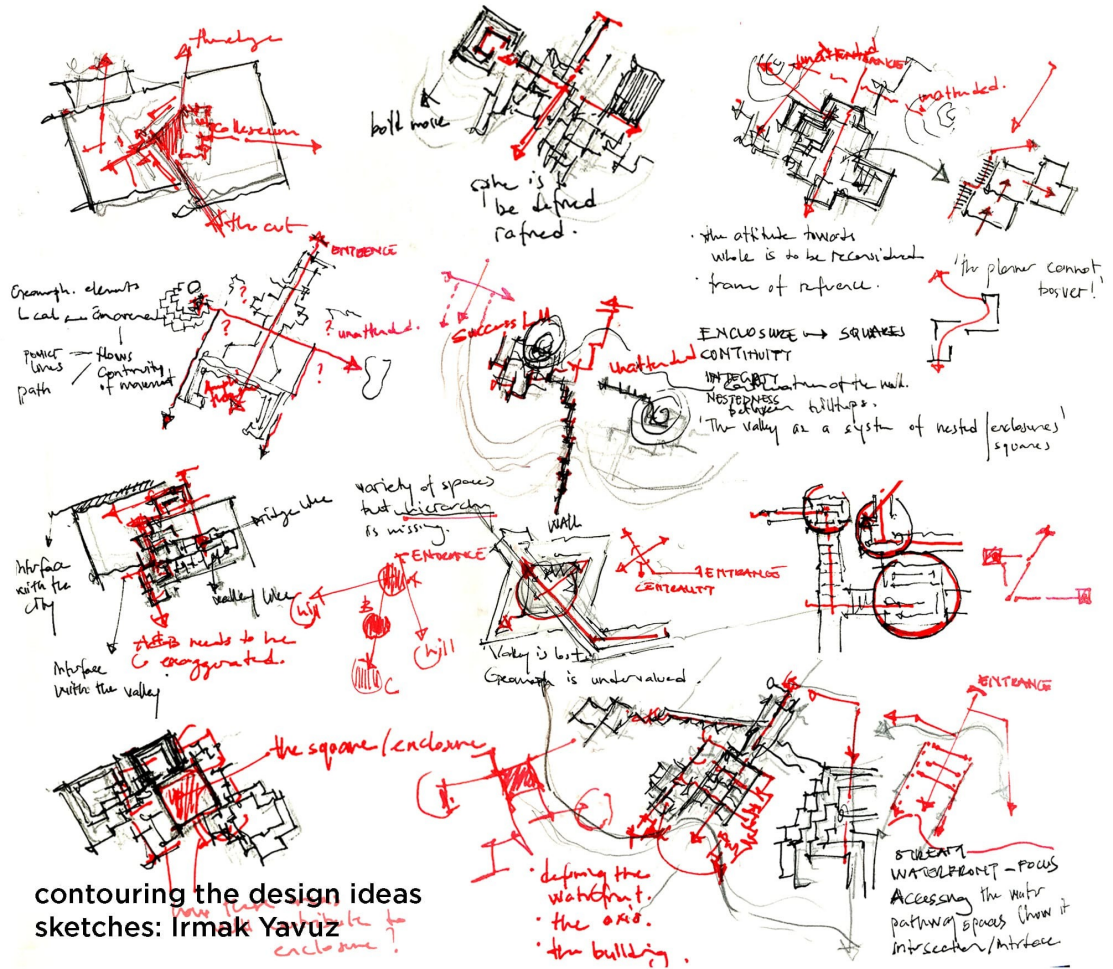 the edge
Colloseum
the cut
bold move
to be
be defined
unattended
ENTRANCE
unattended.
• the attitude towards
whole is to be reconsidered
• frame of reference.
'the planner cannot
ENTRENCE
Geomorph. elements
Local
flows
Continuity
of movement
path
?
?
?
?
unattended.
Successful
Unattended
ENCLOSURE → SQUARES
CONTINUITY
INTEGRITY
Continuation of the wall.
NESTEDNESS
between hilltops.
'The valley as a system of nested/enclosures'
squares
WALL
variety of spaces
but hierarchy
is missing.
Interface
with the
city
Bridge
valley
needs to be
exaggerated.
Interface
with the valley
ENTRANCE
hill
B
hill
C
ENTRANCE
CENTRALITY
Valley is lost.
Geomorph is undervalued.
the square/enclosure
enclosure?
• defining the
waterfront.
• the axis.
• the building.
ENTRANCE
WATERFRONT – FOCUS
Accessing the water
pathway spaces (how it
intersection/interface
contouring the design ideas
sketches: Irmak Yavuz